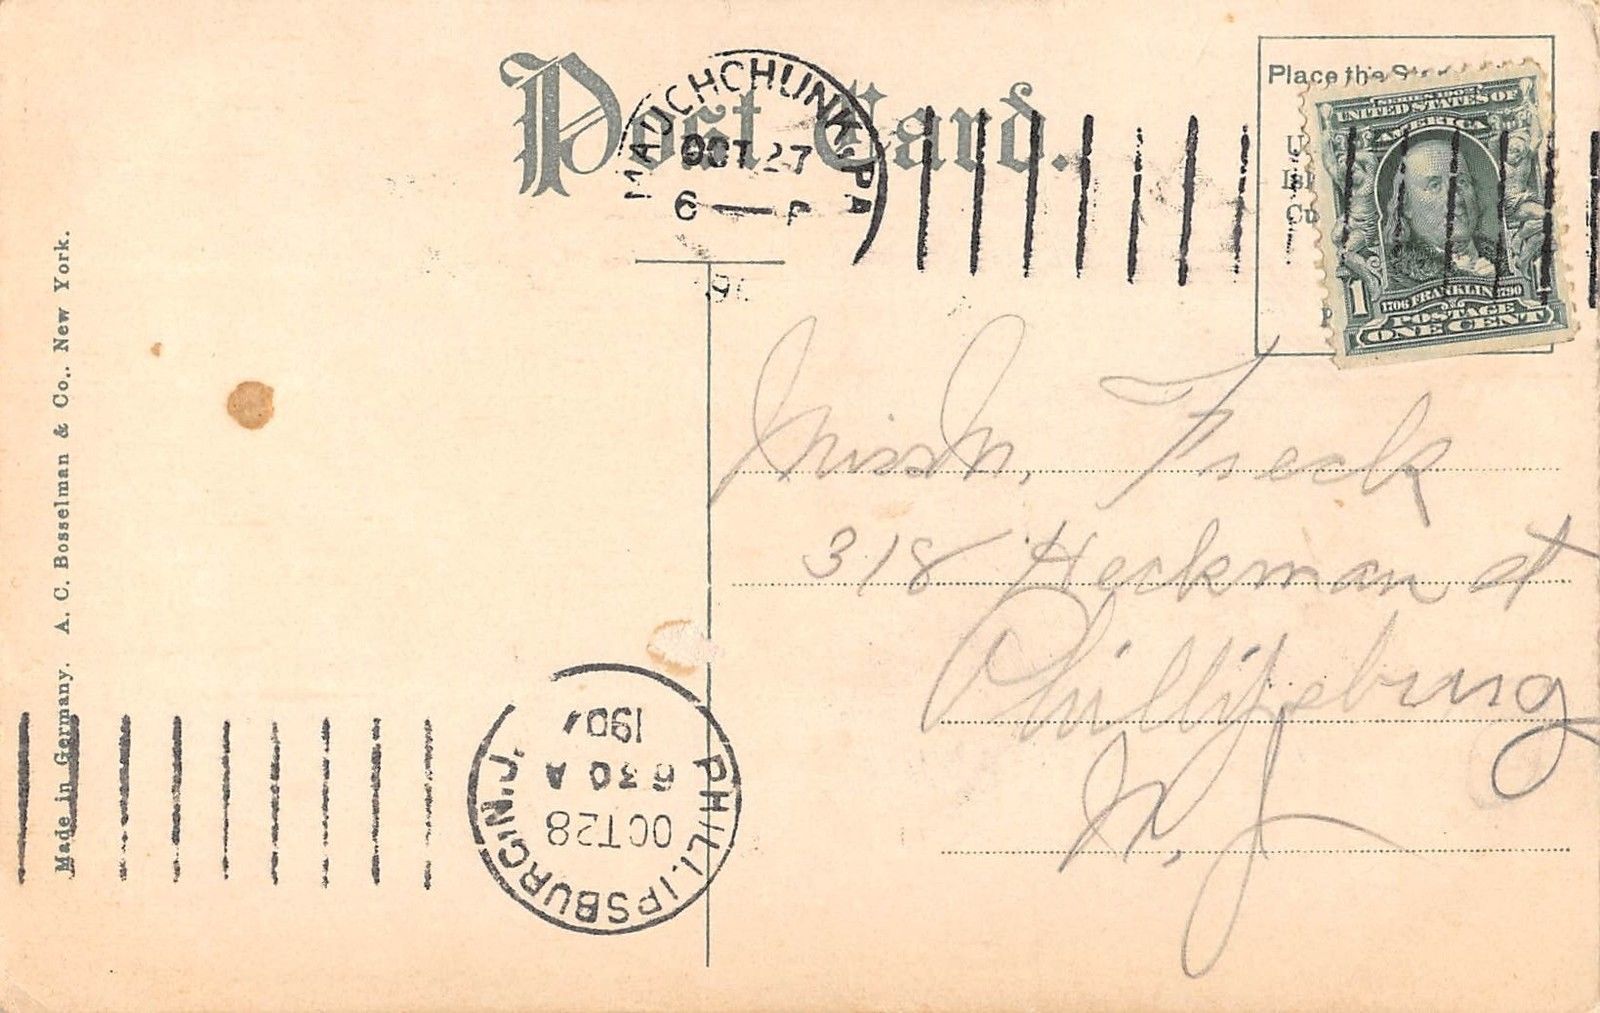 Post Card.
MAUCH CHUNK, PA
OCT 27
6 — P
Place the
UNITED STATES OF
AMERICA
1706 FRANKLIN 1790
POSTAGE
1 ONE CENT 1
Miss M. Freck
318 Heckman st
Phillipsburg
N. J.
Made in Germany. A. C. Bosselman & Co., New York.
PHILLIPSBURG, N.J.
OCT 28
6 30 A
1907